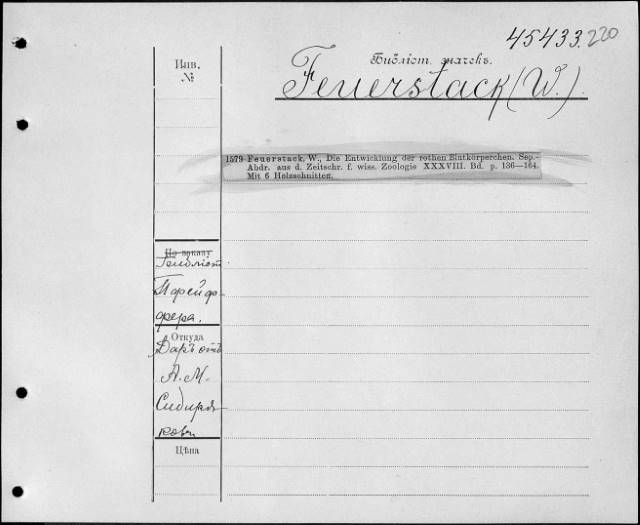 45433.220
Инв.
№
Библіот. значекъ.
Feuerstack (W.).
1579 Feuerstack, W., Die Entwicklung der rothen Blutkörperchen. Sep.-
Abdr. aus d. Zeitschr. f. wiss. Zoologie XXXVIII. Bd. p. 136—164.
Mit 6 Holzschnitten.
По заказу
Пфейф-
фера.
Откуда
Даръ отъ
А. М.
Сибиря-
кова
Цѣна